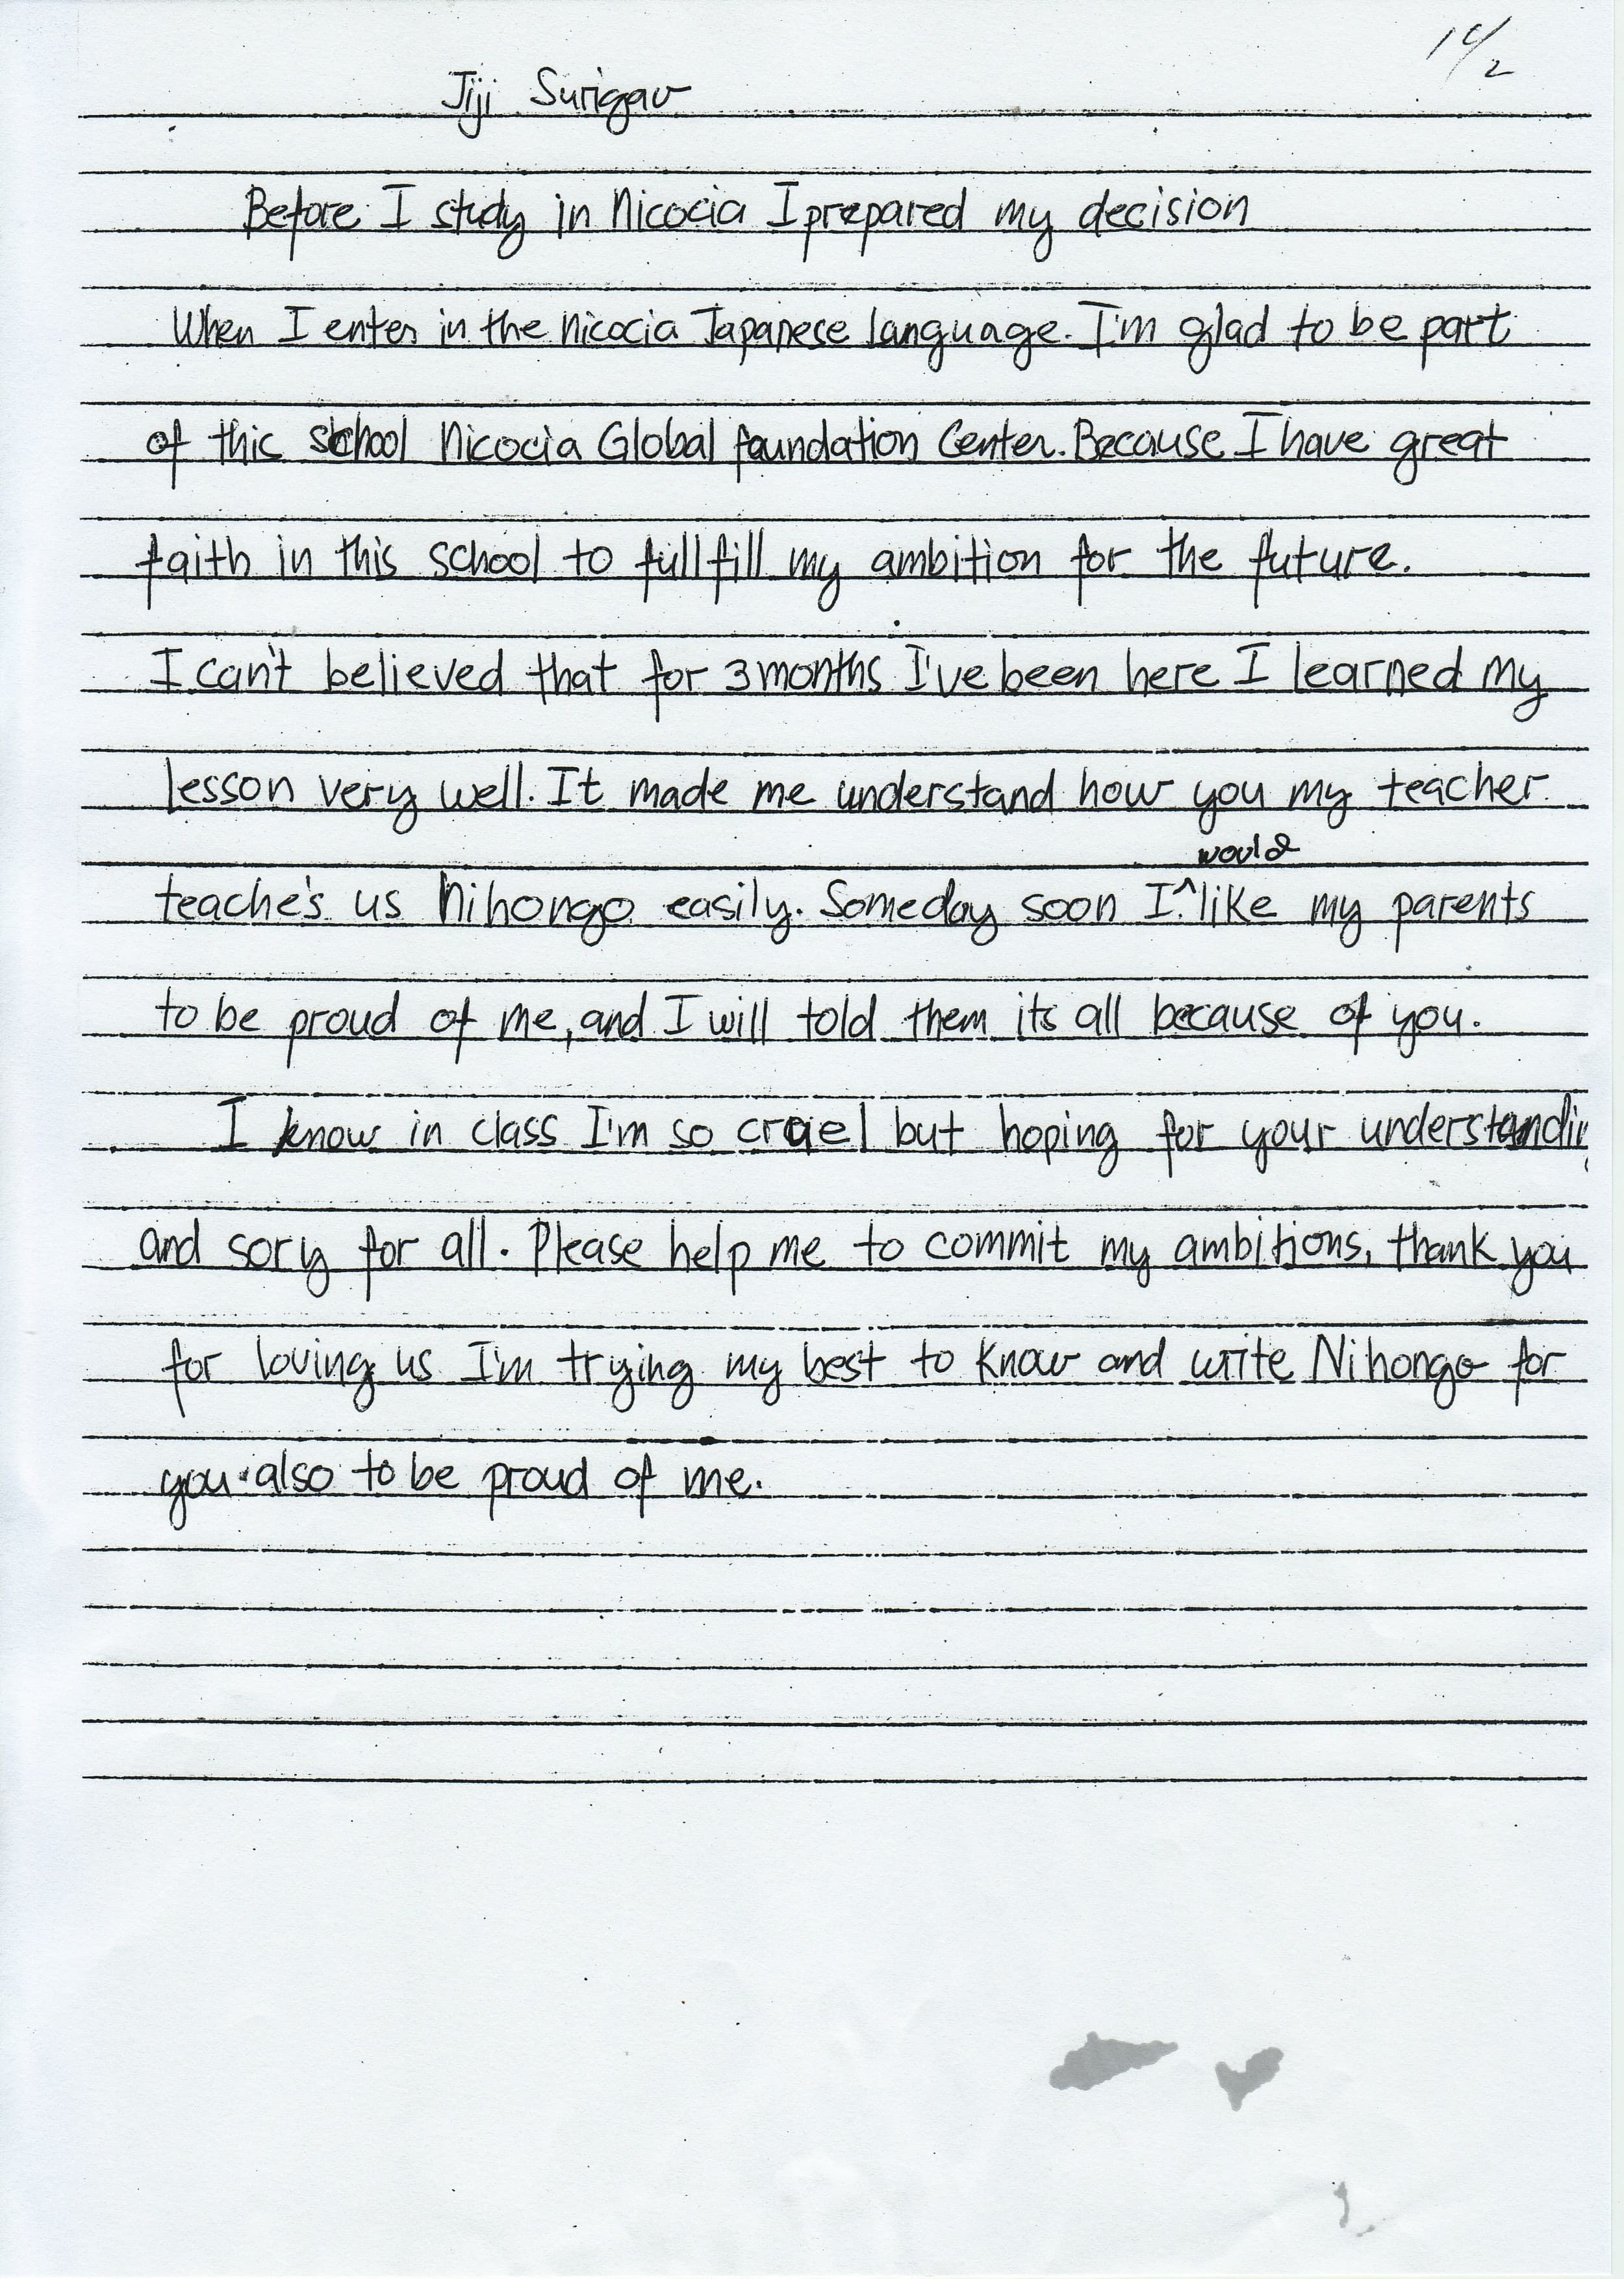 Jiji Surigao
Before I study in Nicocia I prepared my decision
When I enter in the Nicocia Japanese language. I'm glad to be part
of this school Nicocia Global foundation Center. Because I have great
faith in this school to fullfill my ambition for the future.
I can't believed that for 3 months I've been here I learned my
lesson very well. It made me understand how you my teacher
would
teache's us Nihongo easily. Someday soon I ^ like my parents
to be proud of me, and I will told them its all because of you.
I know in class I'm so cruel but hoping for your understandin
and sory for all. Please help me to commit my ambitions, thank you
for loving us I'm trying my best to know and write Nihongo for
you also to be proud of me.